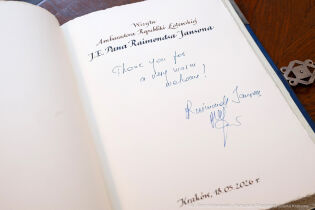 Wizyta
Ambasadora Republiki Łotewskiej
J.E. Pana Raimondsa Jansonsa
Thank you for
a very warm
welcome!
Raimonds Jansons
Kraków, 18.05.2026 r.